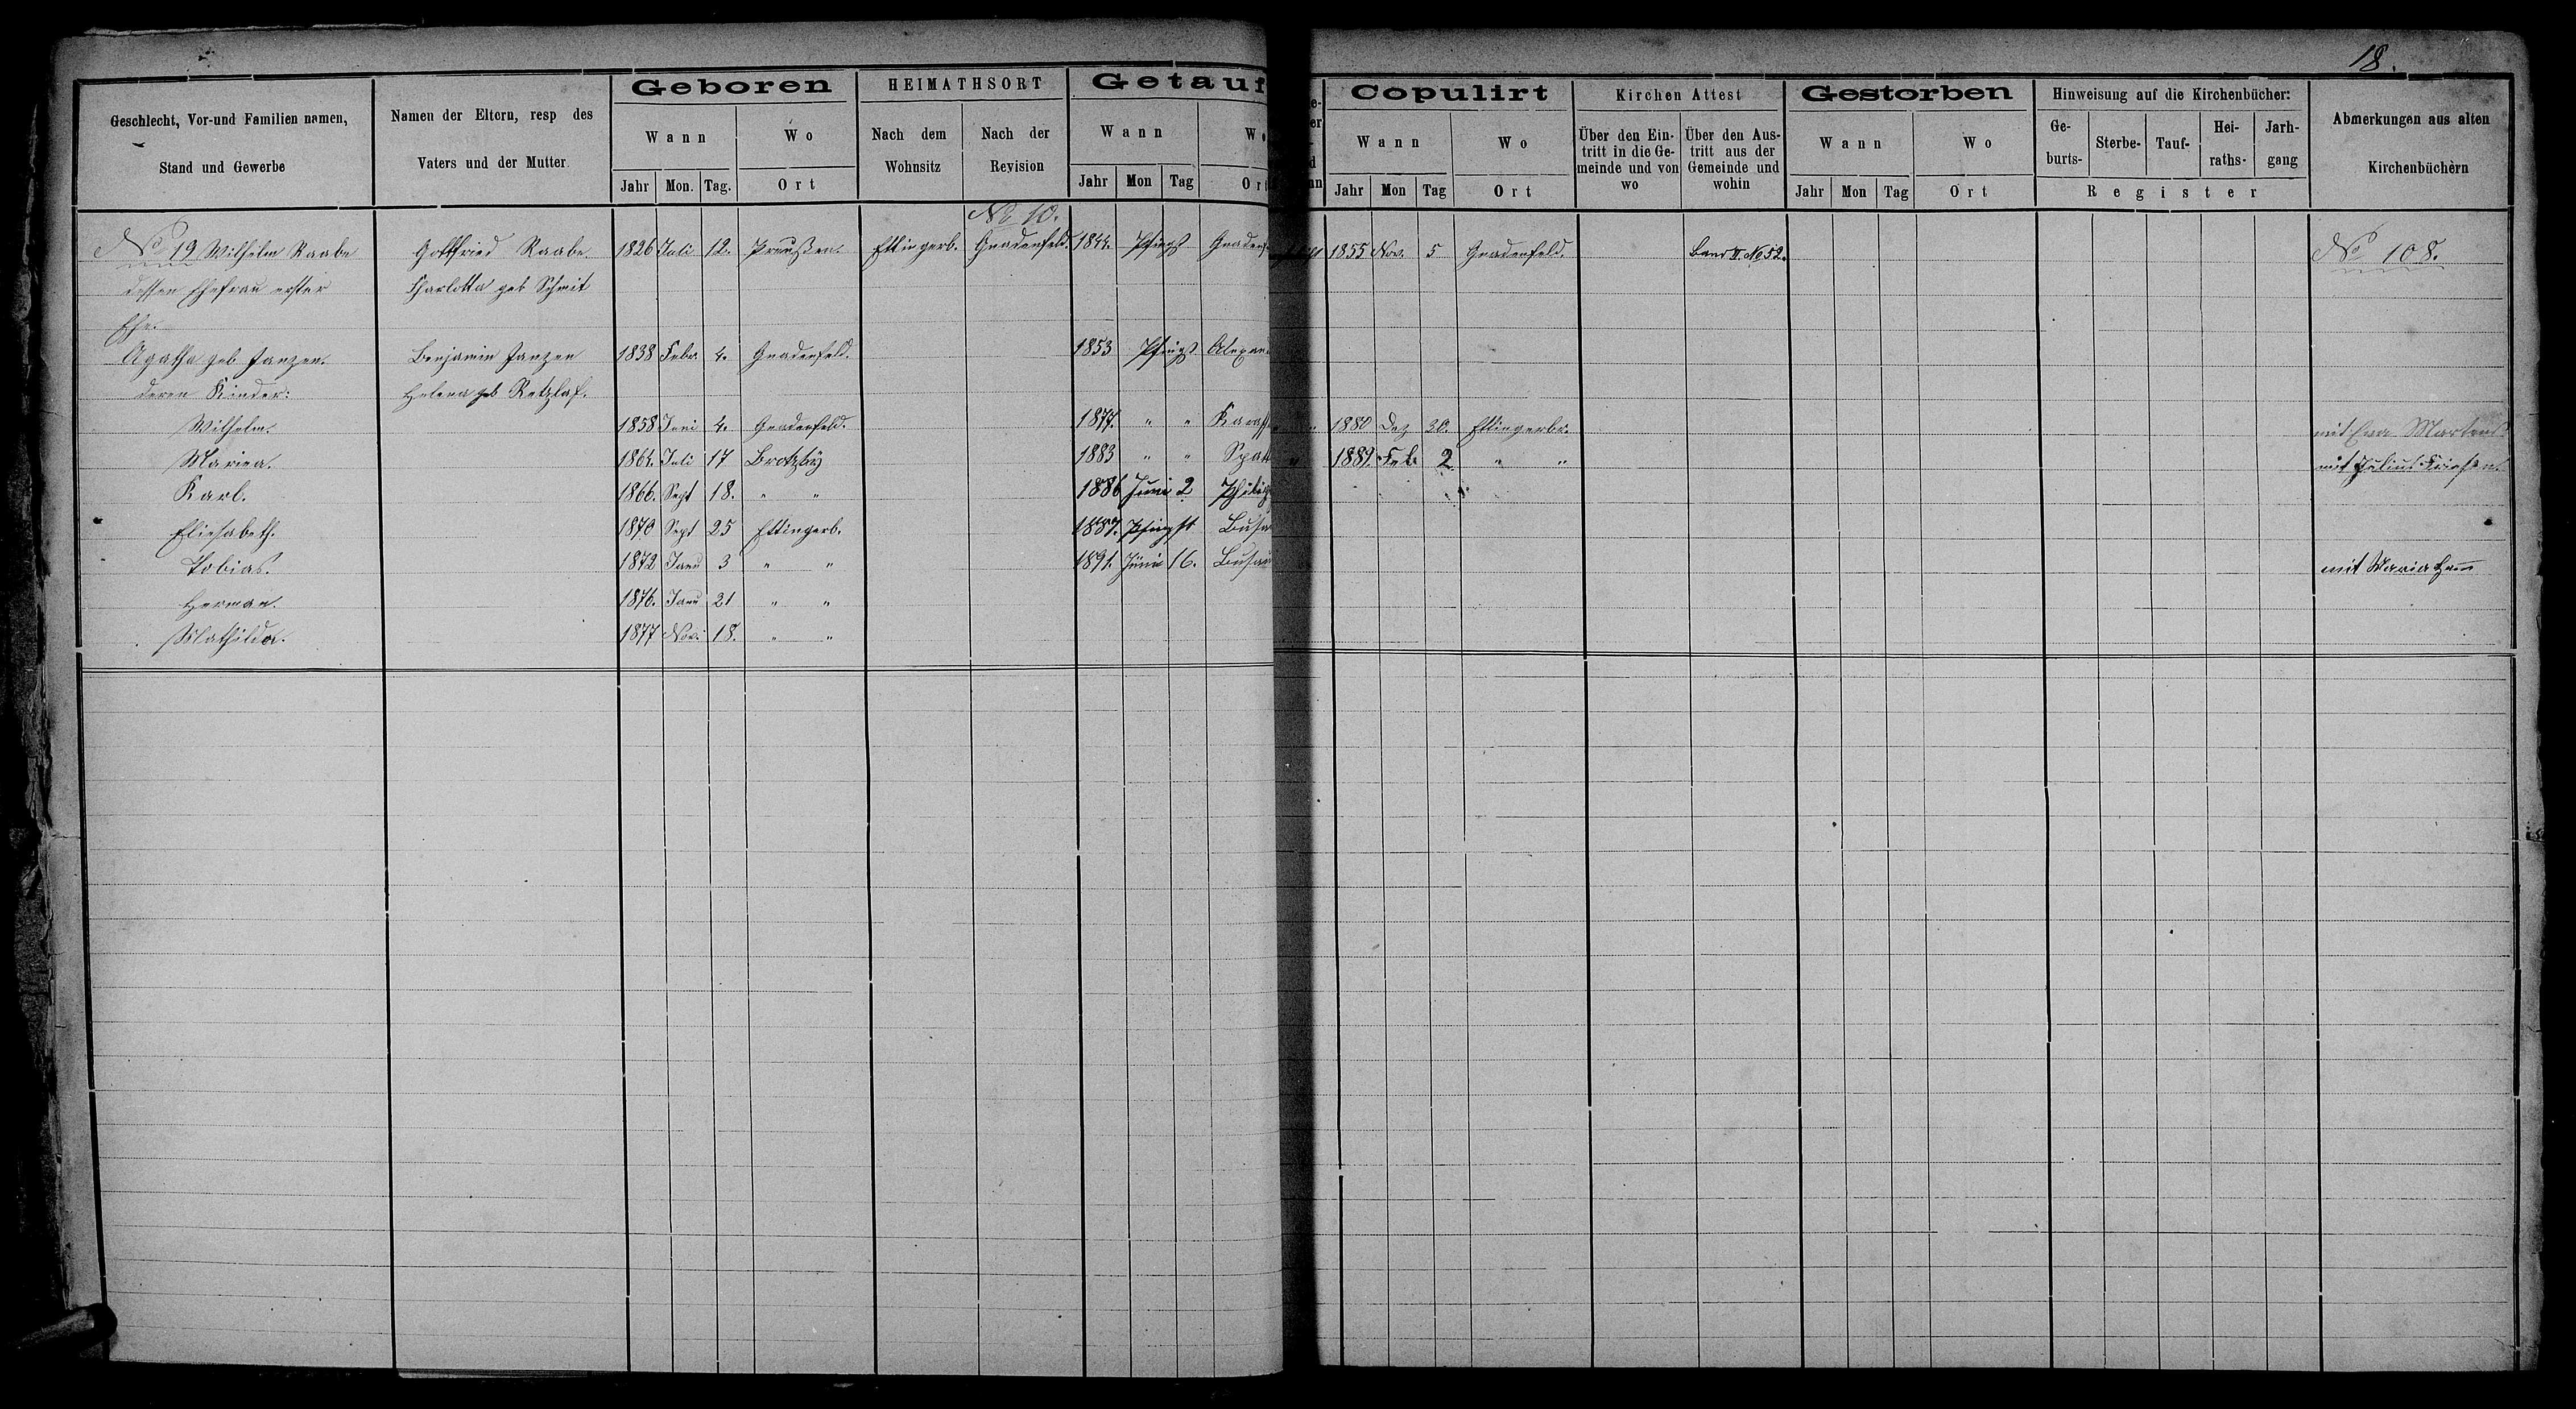 18.
Geschlecht, Vor-und Familien namen, Stand und Gewerbe
Namen der Eltern, resp des Vaters und der Mutter
Geboren
Wann
Wo
Jahr Mon. Tag. Ort
HEIMATHSORT
Nach dem Wohnsitz
Nach der Revision
Getauf
Wann
Jahr Mon Tag
Copulirt
Wann
Wo
Jahr Mon Tag Ort
Kirchen Attest
Über den Eintritt in die Gemeinde und von wo
Über den Austritt aus der Gemeinde und wohin
Gestorben
Wann
Wo
Jahr Mon Tag Ort
Hinweisung auf die Kirchenbücher:
Geburts- Sterbe- Tauf- Heiraths- Jarhgang
Register
Abmerkungen aus alten Kirchenbüchèrn
No 10.
No 19 Wilhelm Raabe Gottfried Raabe. 1826 Juli 12. Preußen. Ettingerb. Gnadenfeld. 1844. Pfingst Gnadenf 1855 Nov. 5 Gnadenfeld. Band II. No 52. No 108.
dessen Ehefrau erster Charlotta geb Schmit
Ehe.
Agatha geb Janzen. Benjamin Janzen 1838 Febr. 4. Gnadenfeld. 1853 Pfingst Alexan
deren Kinder: Helena geb Retzlaf.
Wilhelm. 1858 Juni 4. Gnadenfeld. 1877. " " Karass " 1880 Dez 30. Ettingerbr. mit Eva Martens
Mariea. 1864. Juli 17 Brotzky 1883 " " Spatt " 1889. Feb. 2 " " mit Julius Friesen.
Karl. 1866. Sept 18. " " 1886 Juni 2
Eliesabeth. 1870 Sept 25 Ettingerb. 1887. Pfingst Busa
Tobias. 1872 Janu 3 " " 1891. Juni 16. Busau mit Maria Ham
Herman. 1876. Janu 21 " "
Mathilda. 1877 Nov. 18. " "